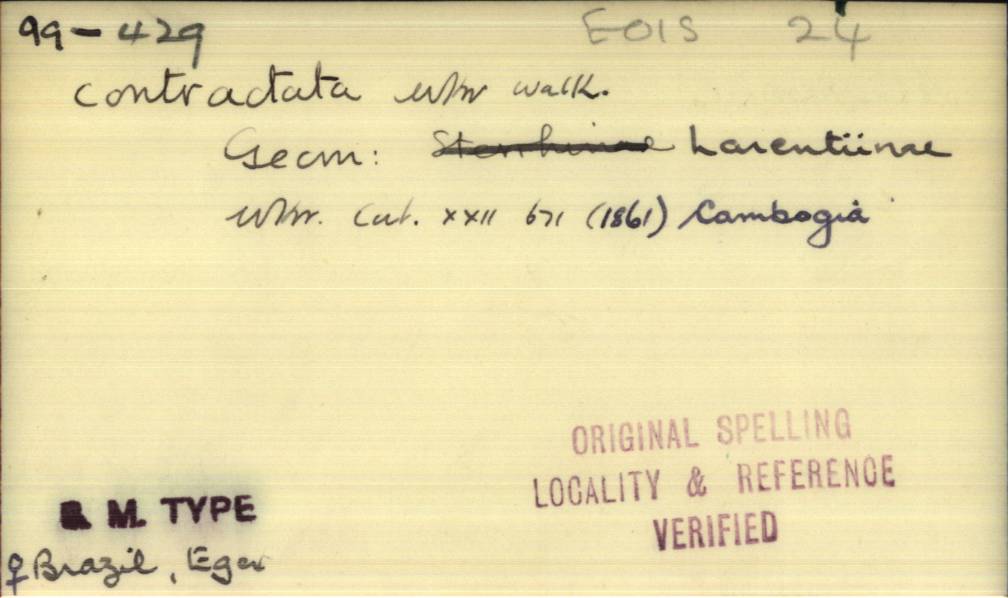 99-429 EOIS 24
contractata Wkr walk.
Geom: Sterrhinae Larentiinae
Wkr. Cat. xxii 671 (1861) Cambogia
ORIGINAL SPELLING
LOCALITY & REFERENCE
VERIFIED
B. M. TYPE
♀ Brazil, Ega